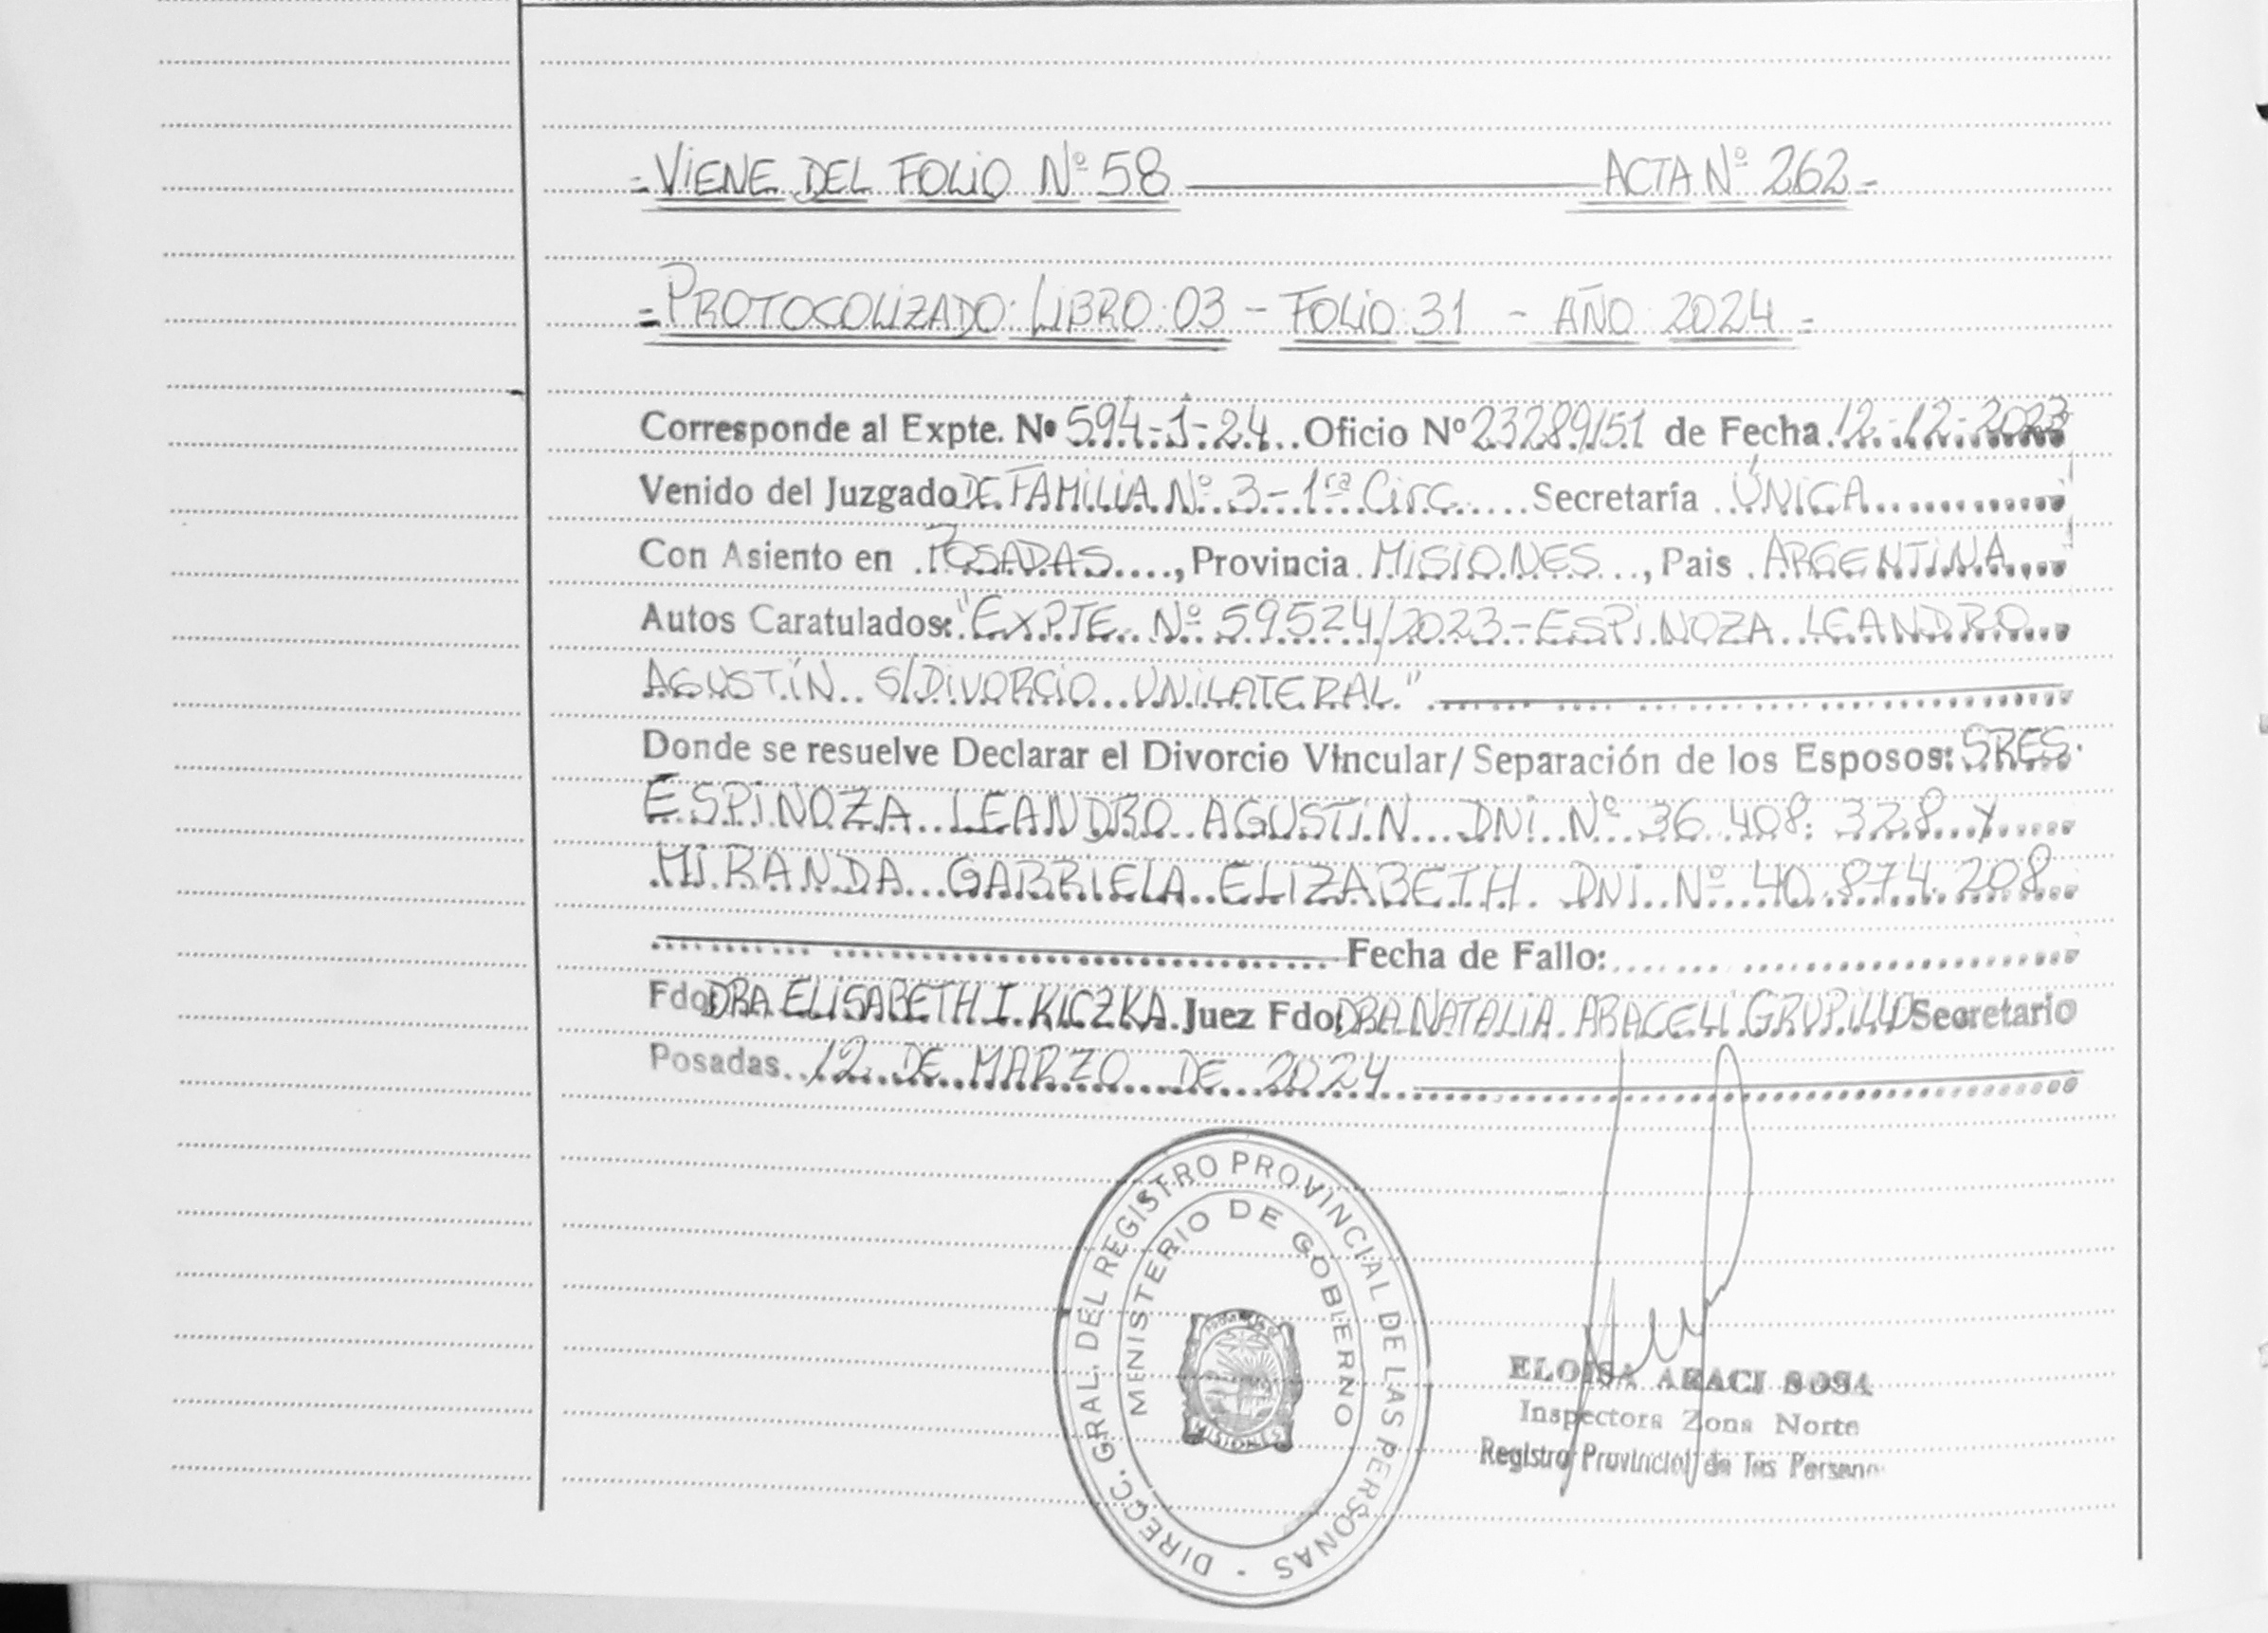 =VIENE DEL FOLIO Nº 58 ACTA Nº 262=
=PROTOCOLIZADO: LIBRO: 03 - FOLIO: 31 - AÑO 2024=
Corresponde al Expte. Nº 594-J-24 Oficio Nº 23289/51 de Fecha 12-12-2023
Venido del Juzgado DE FAMILIA Nº 3-1ra Circ. Secretaría ÚNICA
Con Asiento en POSADAS, Provincia MISIONES, Pais ARGENTINA
Autos Caratulados: "EXPTE. Nº 59524/2023-ESPINOZA LEANDRO
AGUSTÍN S/DIVORCIO UNILATERAL."
Donde se resuelve Declarar el Divorcio Vincular/Separación de los Esposos: SRES.
ESPINOZA LEANDRO AGUSTIN DNI Nº 36.408.328 Y
MIRANDA GABRIELA ELIZABETH. DNI Nº 40.874.208
Fecha de Fallo:
Fdo: DRA ELISABETH I. KICZKA. Juez Fdo: DRA NATALIA ARACELI GRUPILLO Secretario
Posadas. 12 DE MARZO DE 2024
DIRECC. GRAL. DEL REGISTRO PROVINCIAL DE LAS PERSONAS -
MINISTERIO DE GOBIERNO
MISIONES
ELOISA ARACI SOSA
Inspectora Zona Norte
Registro Provincial de las Personas